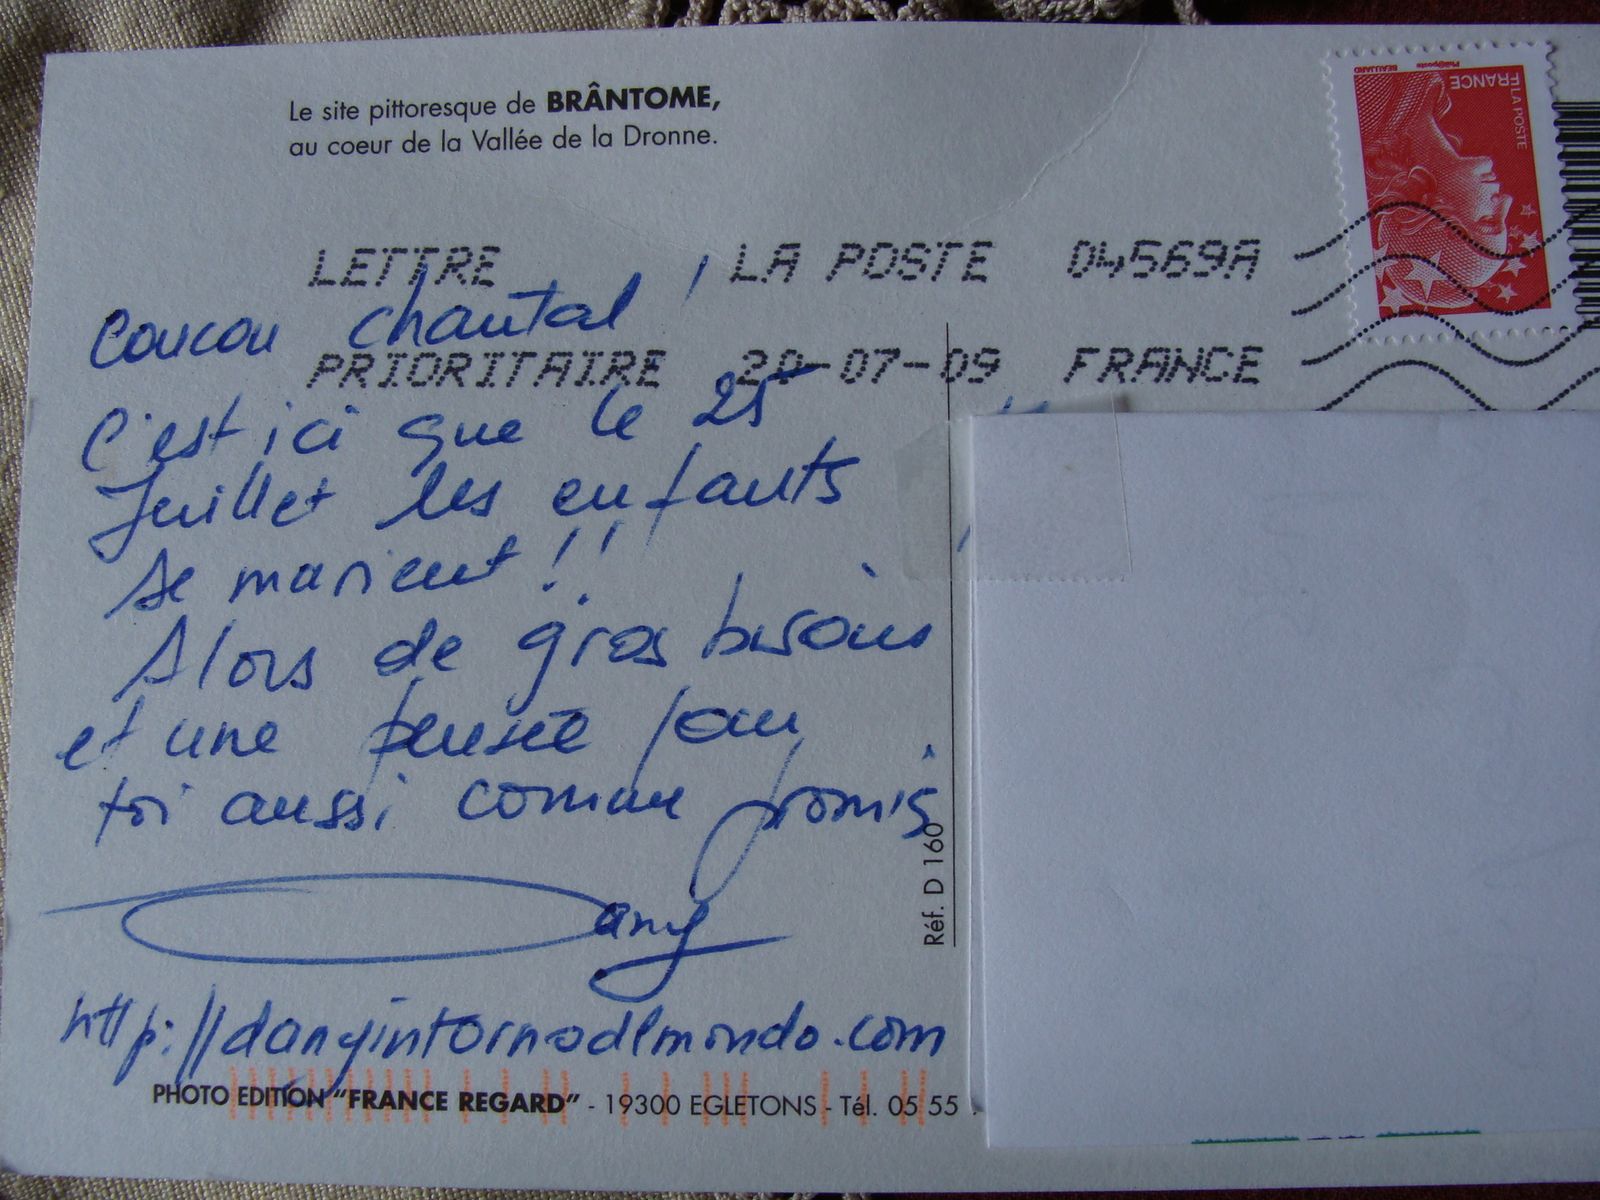 Le site pittoresque de BRÂNTOME,
au coeur de la Vallée de la Dronne.
BEAUJARD Phil@poste
FRANCE
LA POSTE
LETTRE LA POSTE 04569A
PRIORITAIRE 20-07-09 FRANCE
Coucou Chantal,
C'est ici que le 25
Juillet les enfants
se marient !!
Alors de gros bisous
et une pensée pour
toi aussi comme promis
Dany
http://danyintornodlmondo.com
Réf. D 160
PHOTO EDITION "FRANCE REGARD" - 19300 EGLETONS - Tél. 05 55